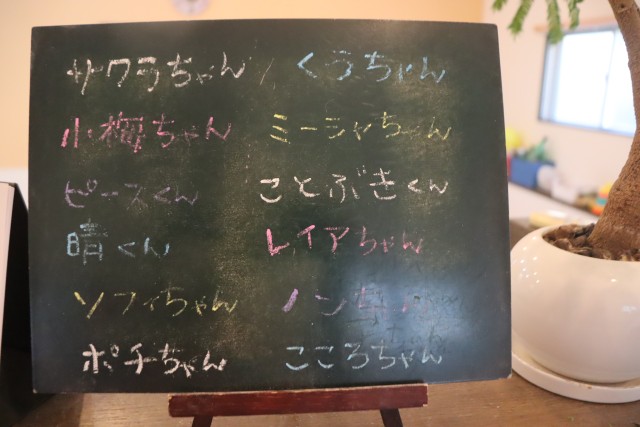 サクラちゃん くうちゃん
小梅ちゃん ミーシャちゃん
ピースくん ことぶきくん
晴くん レイアちゃん
ソフィちゃん ノンちゃん
ポチちゃん こころちゃん